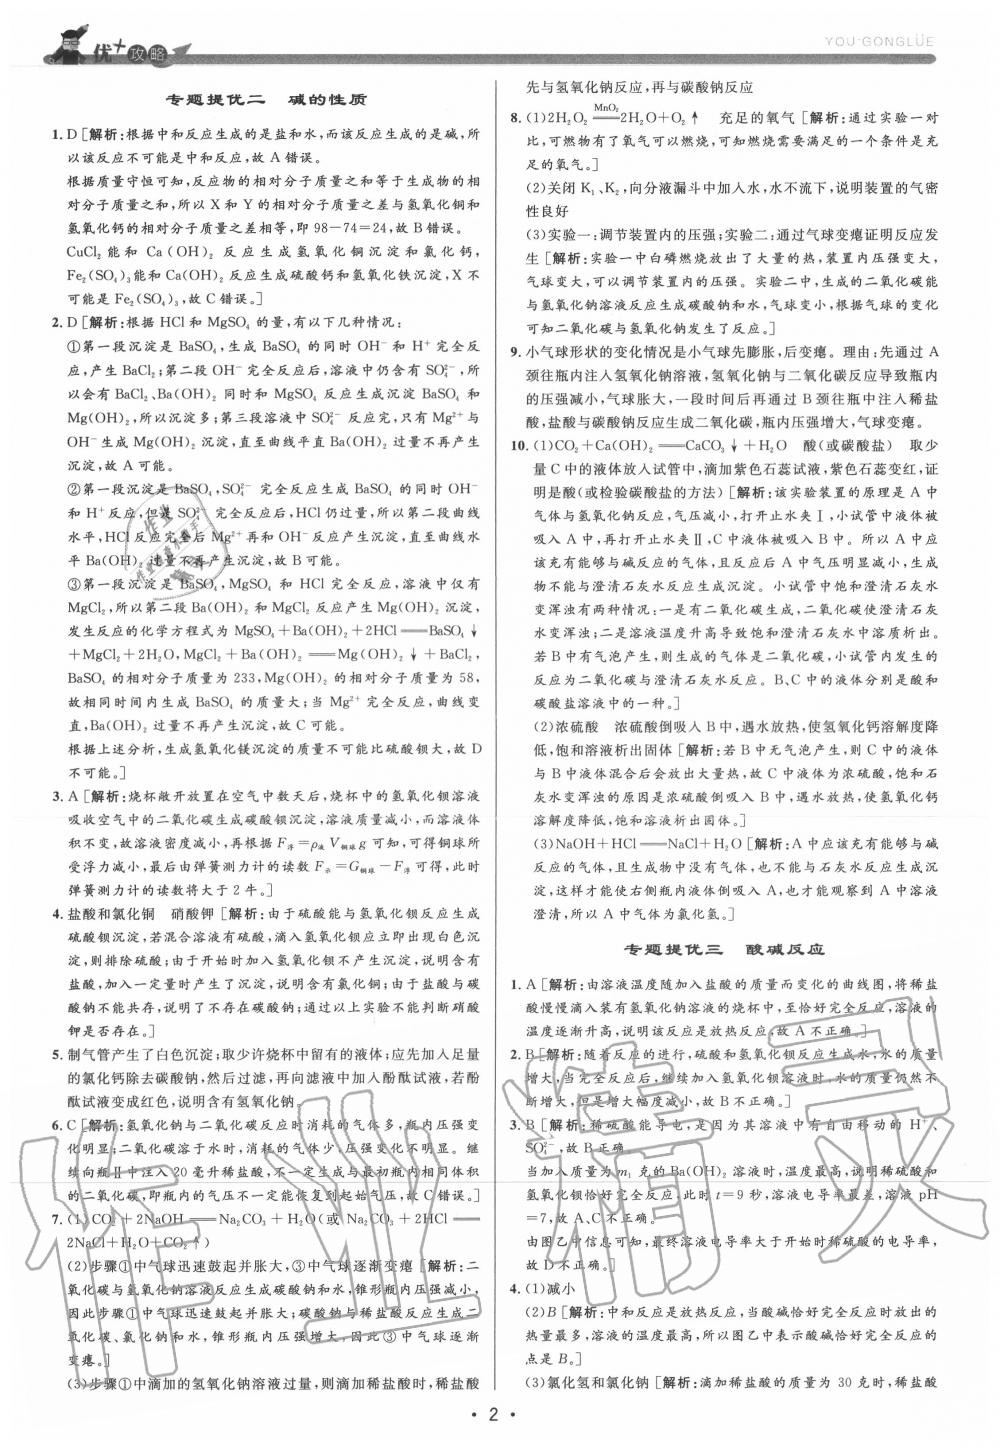 优+攻略
YOU·GONGLÜE
专题提优二 碱的性质
1. D [解析:根据中和反应生成的是盐和水,而该反应生成的是碱,所
以该反应不可能是中和反应,故 A 错误。
根据质量守恒可知,反应物的相对分子质量之和等于生成物的相
对分子质量之和,所以 X 和 Y 的相对分子质量之差与氢氧化铜和
氢氧化钙的相对分子质量之差相等,即 98-74=24,故 B 错误。
CuCl₂ 能和 Ca(OH)₂ 反应生成氢氧化铜沉淀和氯化钙,
Fe₂(SO₄)₃能和Ca(OH)₂ 反应生成硫酸钙和氢氧化铁沉淀,X 不
可能是 Fe₂(SO₄)₃,故 C 错误。]
2. D [解析:根据 HCl 和 MgSO₄ 的量,有以下几种情况:
①第一段沉淀是 BaSO₄,生成 BaSO₄ 的同时 OH⁻ 和 H⁺ 完全反
应,产生 BaCl₂;第二段 OH⁻ 完全反应后,溶液中仍含有 SO₄²⁻,所
以会有 BaCl₂、Ba(OH)₂ 同时和 MgSO₄ 反应生成沉淀 BaSO₄ 和
Mg(OH)₂,所以沉淀多;第三段溶液中 SO₄²⁻ 反应完,只有 Mg²⁺与
OH⁻生成 Mg(OH)₂ 沉淀,直至曲线平直 Ba(OH)₂ 过量不再产生
沉淀,故 A 可能。
②第一段沉淀是 BaSO₄,SO₄²⁻ 完全反应生成 BaSO₄ 的同时 OH⁻
和 H⁺反应,但是 SO₄²⁻完全反应后,HCl仍过量,所以第二段曲线
水平,HCl反应完全后 Mg²⁺再和 OH⁻反应产生沉淀,直至曲线水
平 Ba(OH)₂ 过量不再产生沉淀,故 B 可能。
③第一段沉淀是 BaSO₄,MgSO₄ 和 HCl 完全反应,溶液中仅有
MgCl₂,所以第二段 Ba(OH)₂ 和 MgCl₂ 反应产生 Mg(OH)₂ 沉淀,
发生反应的化学方程式为 MgSO₄+Ba(OH)₂+2HCl══BaSO₄↓
+MgCl₂+2H₂O,MgCl₂+Ba(OH)₂══Mg(OH)₂↓+BaCl₂,
BaSO₄ 的相对分子质量为 233,Mg(OH)₂ 的相对分子质量为 58,
故相同时间内生成 BaSO₄ 的质量大;当 Mg²⁺ 完全反应,曲线变
直,Ba(OH)₂ 过量不再产生沉淀,故 C 可能。
根据上述分析,生成氢氧化镁沉淀的质量不可能比硫酸钡大,故 D
不可能。]
3. A [解析:烧杯敞开放置在空气中数天后,烧杯中的氢氧化钡溶液
吸收空气中的二氧化碳生成碳酸钡沉淀,溶液质量减小,而溶液体
积不变,故溶液密度减小,再根据 F浮=ρ液 V铜球g 可知,可得铜球所
受浮力减小,最后由弹簧测力计的读数 F示=G铜球-F浮可得,此时
弹簧测力计的读数将大于 2 牛。]
4. 盐酸和氯化铜 硝酸钾 [解析:由于硫酸能与氢氧化钡反应生成
硫酸钡沉淀,若混合溶液有硫酸,滴入氢氧化钡应立即出现白色沉
淀,则排除硫酸;由于开始时加入氢氧化钡不产生沉淀,说明含有
盐酸,加入一定量时产生了沉淀,说明含有氯化铜;由于盐酸与碳
酸钠不能共存,说明了不存在碳酸钠;通过以上实验不能判断硝酸
钾是否存在。]
5. 制气管产生了白色沉淀;取少许烧杯中留有的液体;应先加入足量
的氯化钙除去碳酸钠,然后过滤,再向滤液中加入酚酞试液,若酚
酞试液变成红色,说明含有氢氧化钠。
6. C [解析:氢氧化钠与二氧化碳反应时消耗的气体多,瓶内压强变
化明显;二氧化碳溶于水时,消耗的气体少,压强变化不明显。继
续向瓶Ⅱ中注入 20 毫升稀盐酸,不一定生成与最初瓶内相同体积
的二氧化碳,即瓶内的气压不一定能恢复到起始气压,故 C 错误。]
7. (1) CO₂ + 2NaOH ══ Na₂CO₃ + H₂O(或 Na₂CO₃ + 2HCl ══
2NaCl+H₂O+CO₂↑)
(2)步骤①中气球迅速鼓起并胀大,③中气球逐渐变瘪 [解析:二
氧化碳与氢氧化钠溶液反应生成碳酸钠和水,锥形瓶内压强减小,
因此步骤①中气球迅速鼓起并胀大;碳酸钠与稀盐酸反应生成二
氧化碳、氯化钠和水,锥形瓶内压强增大,因此③中气球逐渐
变瘪。]
(3)步骤①中滴加的氢氧化钠溶液过量,则滴加稀盐酸时,稀盐酸
先与氢氧化钠反应,再与碳酸钠反应
8. (1)2H₂O₂ ══(MnO₂) 2H₂O+O₂↑ 充足的氧气 [解析:通过实验一对
比,可燃物有了氧气可以燃烧,可知燃烧需要满足的一个条件是充
足的氧气。]
(2)关闭 K₁、K₂,向分液漏斗中加入水,水不流下,说明装置的气密
性良好
(3)实验一:调节装置内的压强;实验二:通过气球变瘪证明反应发
生 [解析:实验一中白磷燃烧放出了大量的热,装置内压强变大,
气球变大,可以调节装置内的压强。实验二中,生成的二氧化碳能
与氢氧化钠溶液反应生成碳酸钠和水,气球变小,根据气球的变化
可知二氧化碳与氢氧化钠发生了反应。]
9. 小气球形状的变化情况是小气球先膨胀,后变瘪。理由:先通过 A
颈往瓶内注入氢氧化钠溶液,氢氧化钠与二氧化碳反应导致瓶内
的压强减小,气球胀大,一段时间后再通过 B 颈往瓶中注入稀盐
酸,盐酸与碳酸钠反应生成二氧化碳,瓶内压强增大,气球变瘪。
10. (1)CO₂+Ca(OH)₂══CaCO₃↓+H₂O 酸(或碳酸盐) 取少
量 C 中的液体放入试管中,滴加紫色石蕊试液,紫色石蕊变红,证
明是酸(或检验碳酸盐的方法) [解析:该实验装置的原理是 A 中
气体与氢氧化钠反应,气压减小,打开止水夹Ⅰ,小试管中液体被
吸入 A 中,再打开止水夹Ⅱ,C 中液体被吸入 B 中。所以 A 中应
该充有能够与碱反应的气体,且反应后 A 中气压明显减小,生成
物不能与澄清石灰水反应生成沉淀。小试管中饱和澄清石灰水
变浑浊有两种情况:一是有二氧化碳生成,二氧化碳使澄清石灰
水变浑浊;二是溶液温度升高导致饱和澄清石灰水中溶质析出。
若 B 中有气泡产生,则生成的气体是二氧化碳,小试管内发生的
反应为二氧化碳与澄清石灰水反应。B、C 中的液体分别是酸和
碳酸盐溶液中的一种。]
(2)浓硫酸 浓硫酸倒吸入 B 中,遇水放热,使氢氧化钙溶解度降
低,饱和溶液析出固体 [解析:若 B 中无气泡产生,则 C 中的液体
与 B 中液体混合后会放出大量热,故 C 中液体为浓硫酸,饱和石
灰水变浑浊的原因是浓硫酸倒吸入 B 中,遇水放热,使氢氧化钙
溶解度降低,饱和溶液析出固体。]
(3)NaOH+HCl══NaCl+H₂O [解析:A 中应该充有能够与碱
反应的气体,且生成物中没有气体,也不能与石灰水反应生成沉
淀,这样才能使右侧瓶内液体倒吸入 A,也才能观察到 A 中溶液
澄清,所以 A 中气体为氯化氢。]
专题提优三 酸碱反应
1. A [解析:由溶液温度随加入盐酸的质量而变化的曲线图,将稀盐
酸慢慢滴入装有氢氧化钠溶液的烧杯中,至恰好完全反应,溶液的
温度逐渐升高,说明该反应是放热反应,故 A 不正确。]
2. B [解析:随着反应的进行,硫酸和氢氧化钡反应生成水,水的质量
增大,当完全反应后,继续加入氢氧化钡溶液时,水的质量仍然不
断增大,但是增大幅度减小,故 B 不正确。]
3. B [解析:稀硫酸能导电,是因为其溶液中有自由移动的 H⁺、
SO₄²⁻,故 B 正确。
当加入质量为 m₁ 克的 Ba(OH)₂ 溶液时,温度最高,说明稀硫酸和
氢氧化钡恰好完全反应,此时 t=9 秒,溶液电导率最差,溶液 pH
=7,故 A、C 不正确。
由图乙中信息可知,最终溶液电导率大于开始时稀硫酸的电导率,
故 D 不正确。]
4. (1)减小
(2)B [解析:中和反应是放热反应,当酸碱恰好完全反应时放出的
热量最多,溶液的温度最高,所以图乙中表示酸碱恰好完全反应的
点是 B。]
(3)氯化氢和氯化钠 [解析:滴加稀盐酸的质量为 30 克时,稀盐酸
· 2 ·
作业精灵